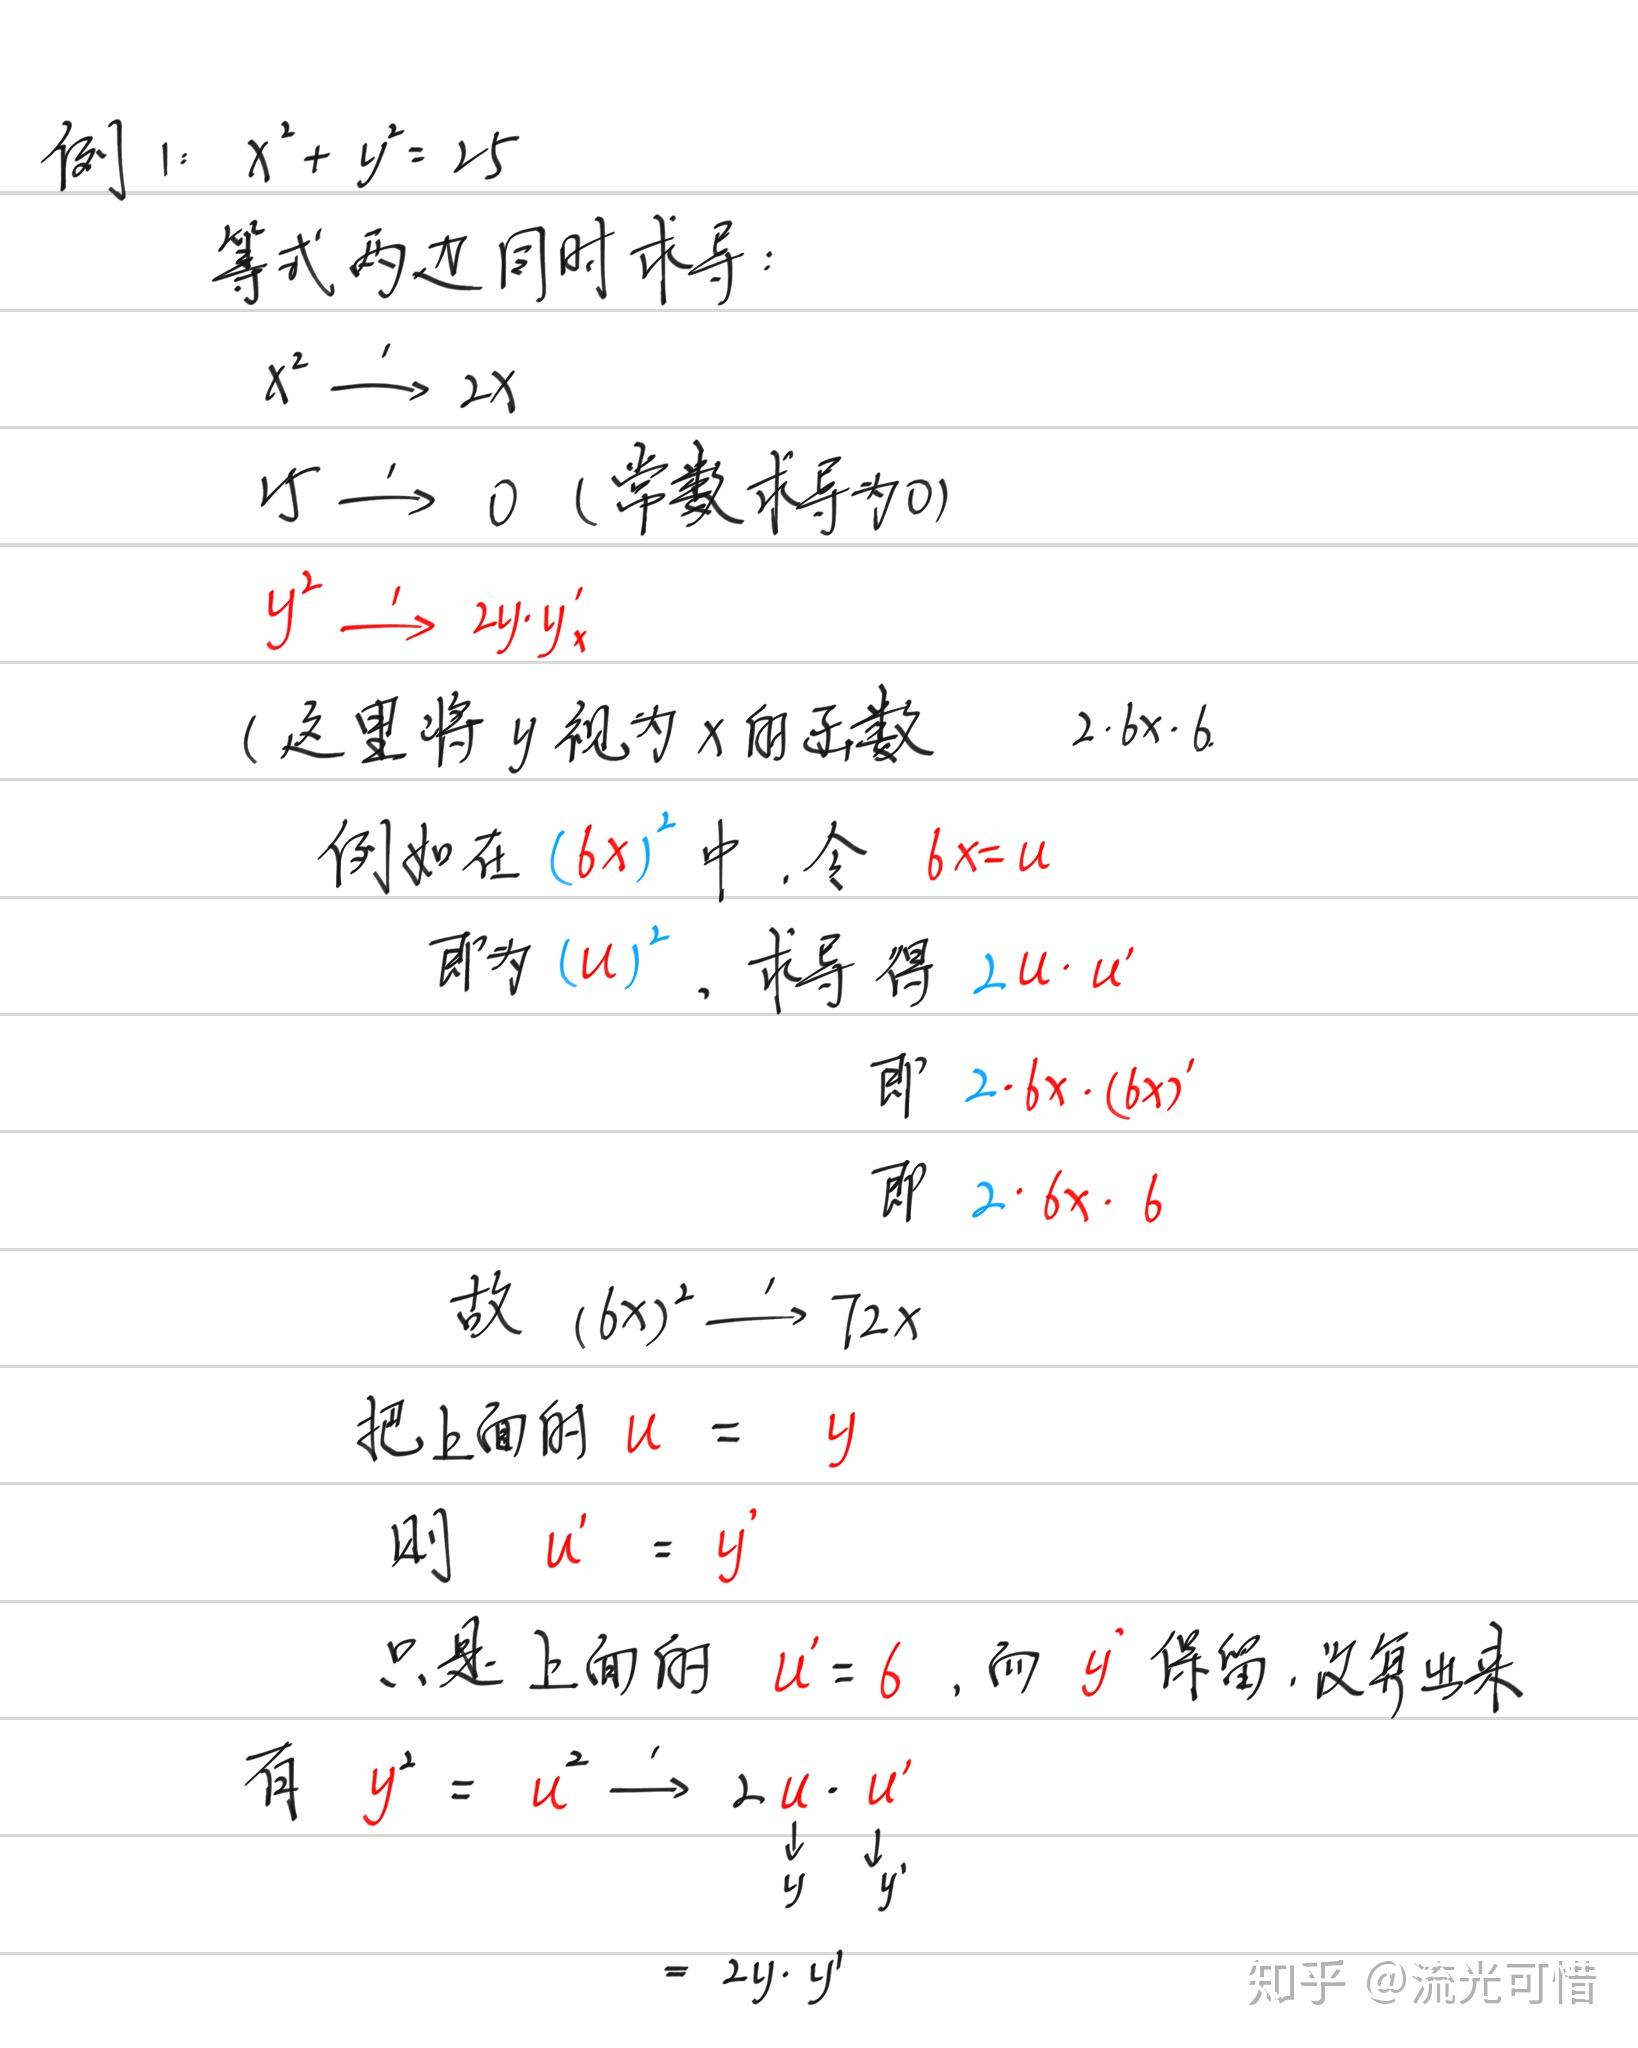 例1: x²+y²=25
等式两边同时求导:
x² —′→ 2x
25 —′→ 0 (常数求导为0)
y² —′→ 2y·y′ₓ
(这里将y视为x的函数 2·6x·6
例如在(6x)²中,令 6x=u
即为(u)²,求导得 2u·u′
即 2·6x·(6x)′
即 2·6x·6
故 (6x)² —′→ 72x
把上面的 u = y
则 u′ = y′
只是上面的 u′=6,而y′保留,没算出来
有 y² = u² —′→ 2u·u′
↓ ↓
y y′
= 2y·y′
知乎 @流光可惜